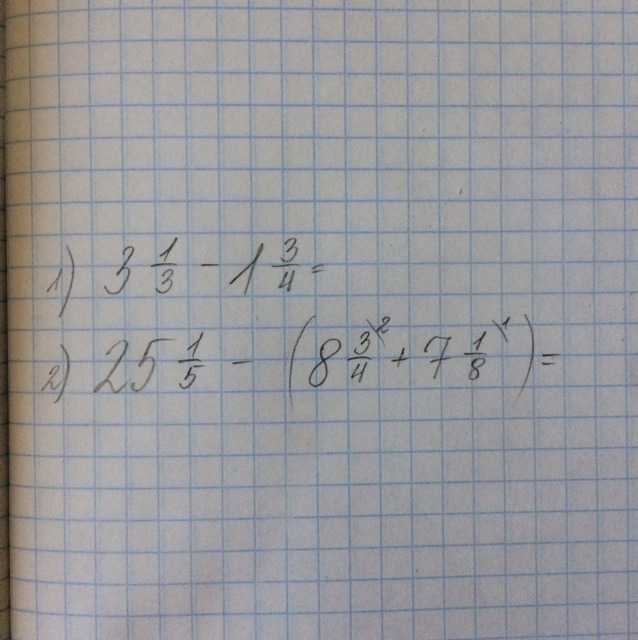 1) 3 1/3 - 1 3/4 =
2) 25 1/5 - (8 3/4 \2 + 7 1/8 \1) =